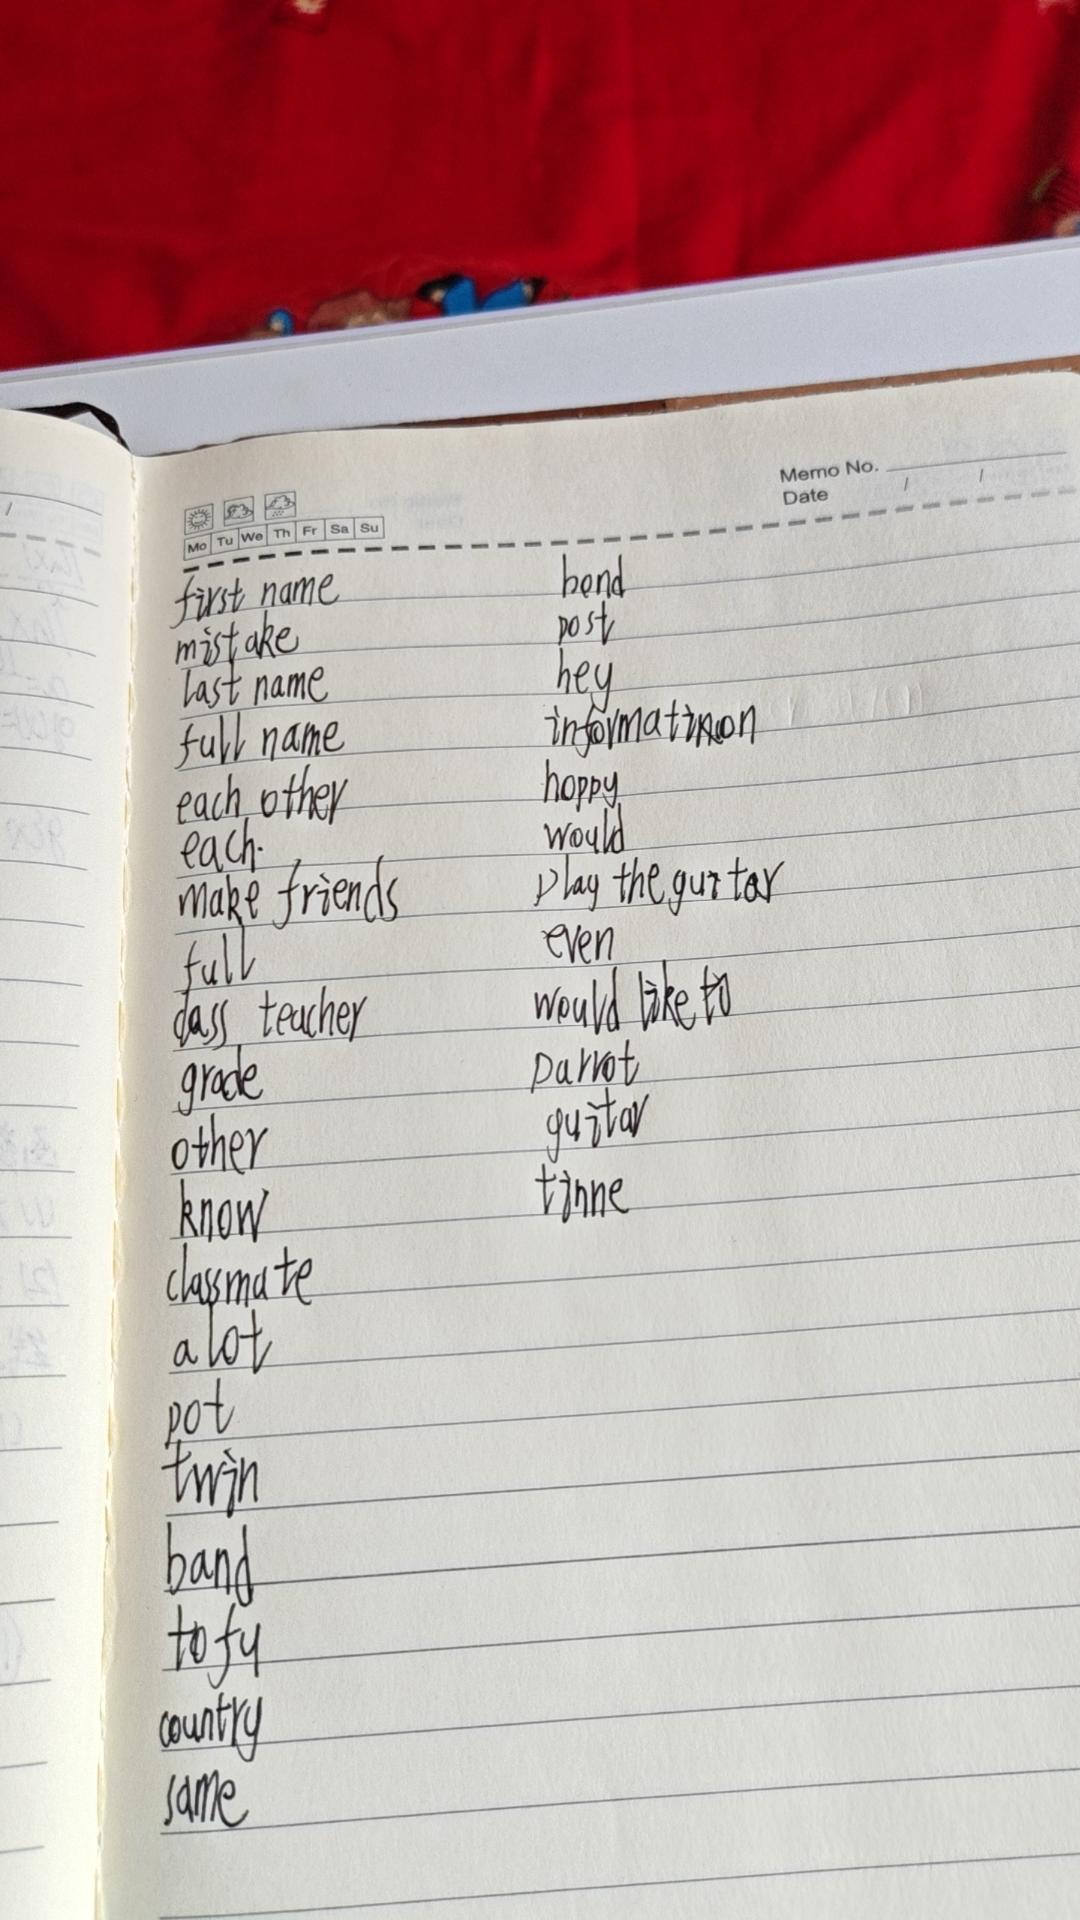 Memo No.
Date / /
Mo Tu We Th Fr Sa Su
first name
mistake
last name
full name
each other
each.
make friends
full
dass teacher
grade
other
know
classmate
a lot
pot
twin
band
tofu
country
same
bond
post
hey
hoppy
would
play the guitar
even
would like to
parrot
guitar
tinne